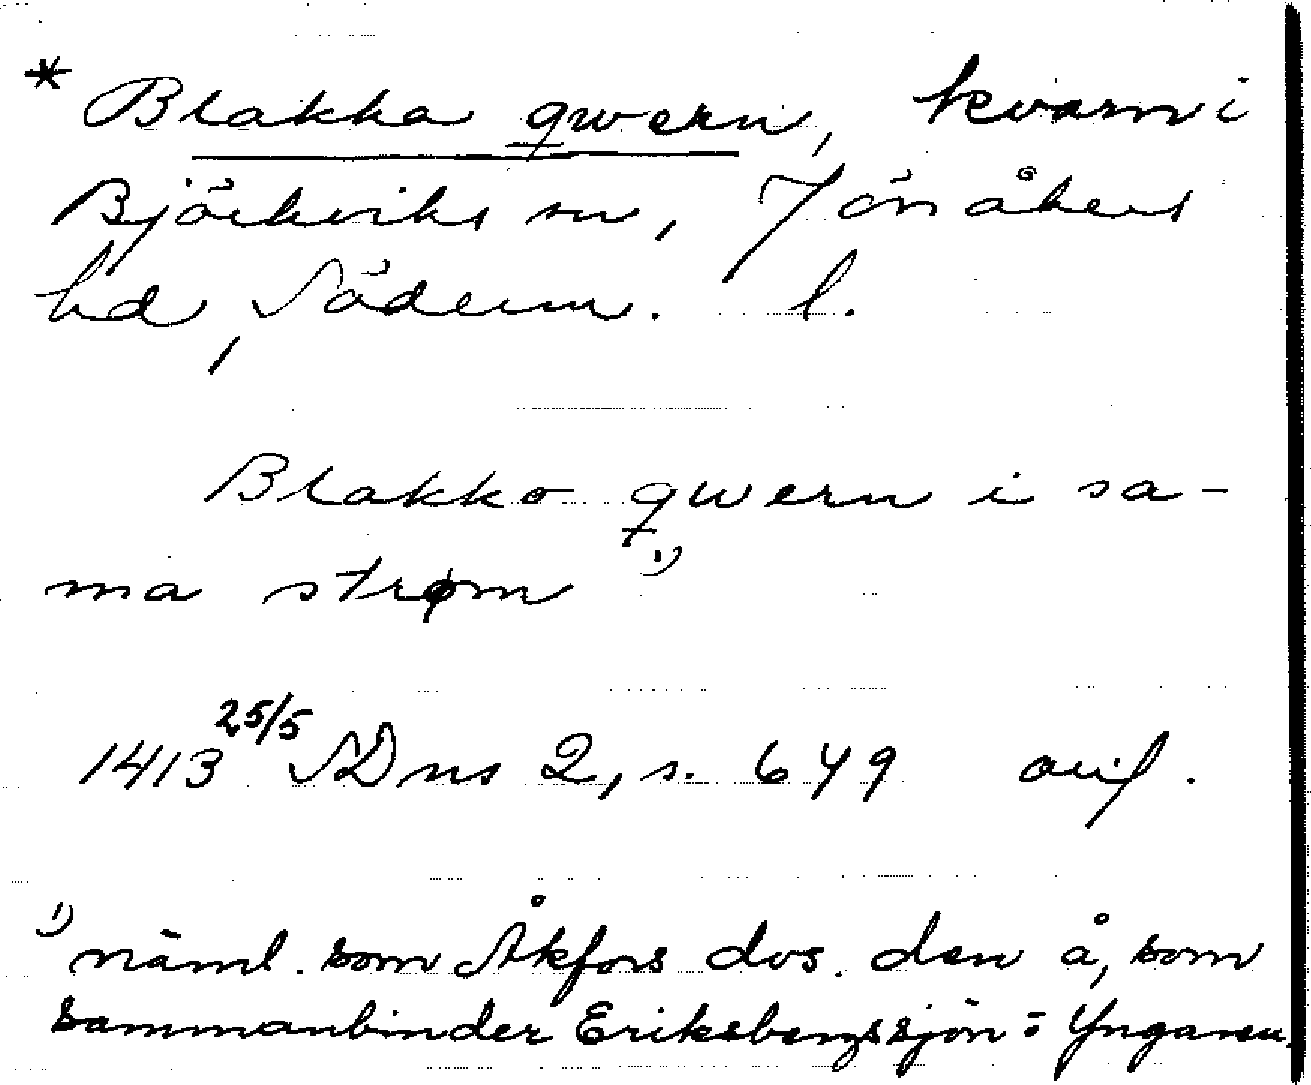 * Blakka qwern, kvarn i
Björkviks sn, Jönåkers
hd, Söderm. l.
Blakko qwern i sa-
ma strøm 1)
1413 25/5 SDns 2, s. 649 avs.
1) näml. som Åkfors dvs. den å, som
sammanbinder Eriksbergssjön o Yngaren.